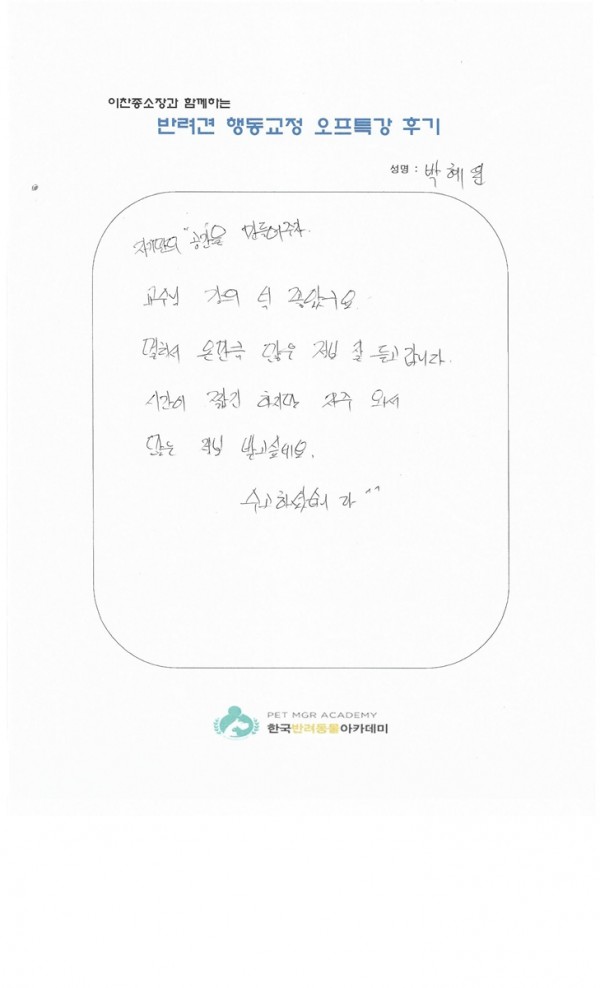 이찬종소장과 함께하는
반려견 행동교정 오프특강 후기
성명 : 박혜원
자기만의 "공간을 만들어주자.
교수님 강의 넉 좋았구요
멀리서 온만큼 많은 정보 잘 듣고 갑니다.
시간이 짧긴 하지만 자주 와서
많은 정보 받고싶네요.
수고하셨습니다 ^^
PET MGR ACADEMY
한국반려동물아카데미